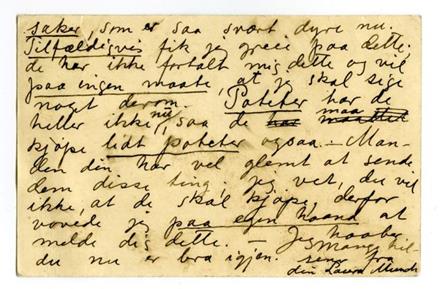 saker, som er saa svært dyre nu.
Tilfældigvis fik jeg greie paa dette;
de har ikke fortalt mig dette og vil
paa ingen maate, at jeg skal sige
noget derom. Poteter har de
heller ikke nu, saa de har maattet maa
kjøpe lidt poteter ogsaa. — Man-
den din har vel glemt at sende
dem disse ting; jeg vet, du vil
ikke, at de skal kjøpe, derfor
vovede jeg paa egen haand at
melde dig dette. — Jeg haaber
du nu er bra igjen. Mange hil-
sener fra
din Laura Munch